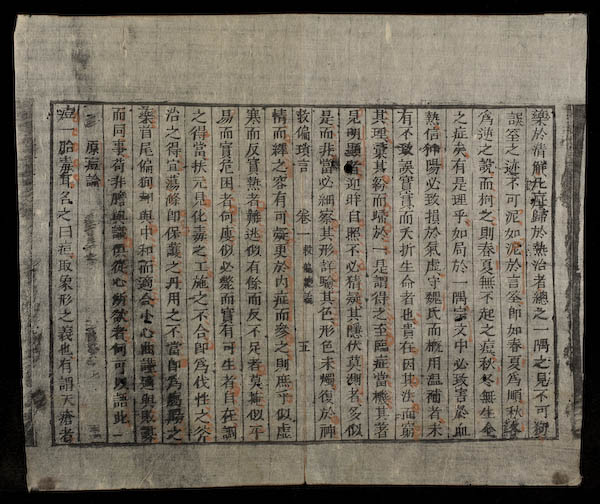 藥於清解尢症歸於熱治者總之一隅之見不可狥
誤筌之迹不可泥如泥於言筌即如春夏為順秋
為逆之說而狥之則春夏無不起之痘秋冬無生全
之症矣有是理乎如局於一隅宗文中必致害於血
熱信神陽必致損於氣虛守魏氏而概用溫補者未
有不致誤實實而夭折生命者也貴在因其法而窮
其理彙其紛而歸於一是謂得之至臨症當機其著
見明顯者迎眸自照不必精疑其隱伏莫測者多似
是而非當必細察其形詳驗其色形色未燭復於神
救偏瑣言 卷一 五
情而繹之容有可疑更於內症而參之則庶乎似虛
寒而反實熱者難逃似有餘而反不足者莫掩似平
易而實危困者何庾似必斃而實有可生者自在調
之得當扶元見化毒之工施之不合即為伐性之斧
治之得宜蕩滌即保護之丹用之不當即為
柒首尾偏狥與中和而適合小心與
而同事苟非膽與識俱從心所欲者何可以語此
原痘論
痘一胎毒耳名之曰痘取象形之義也有謂天瘡者